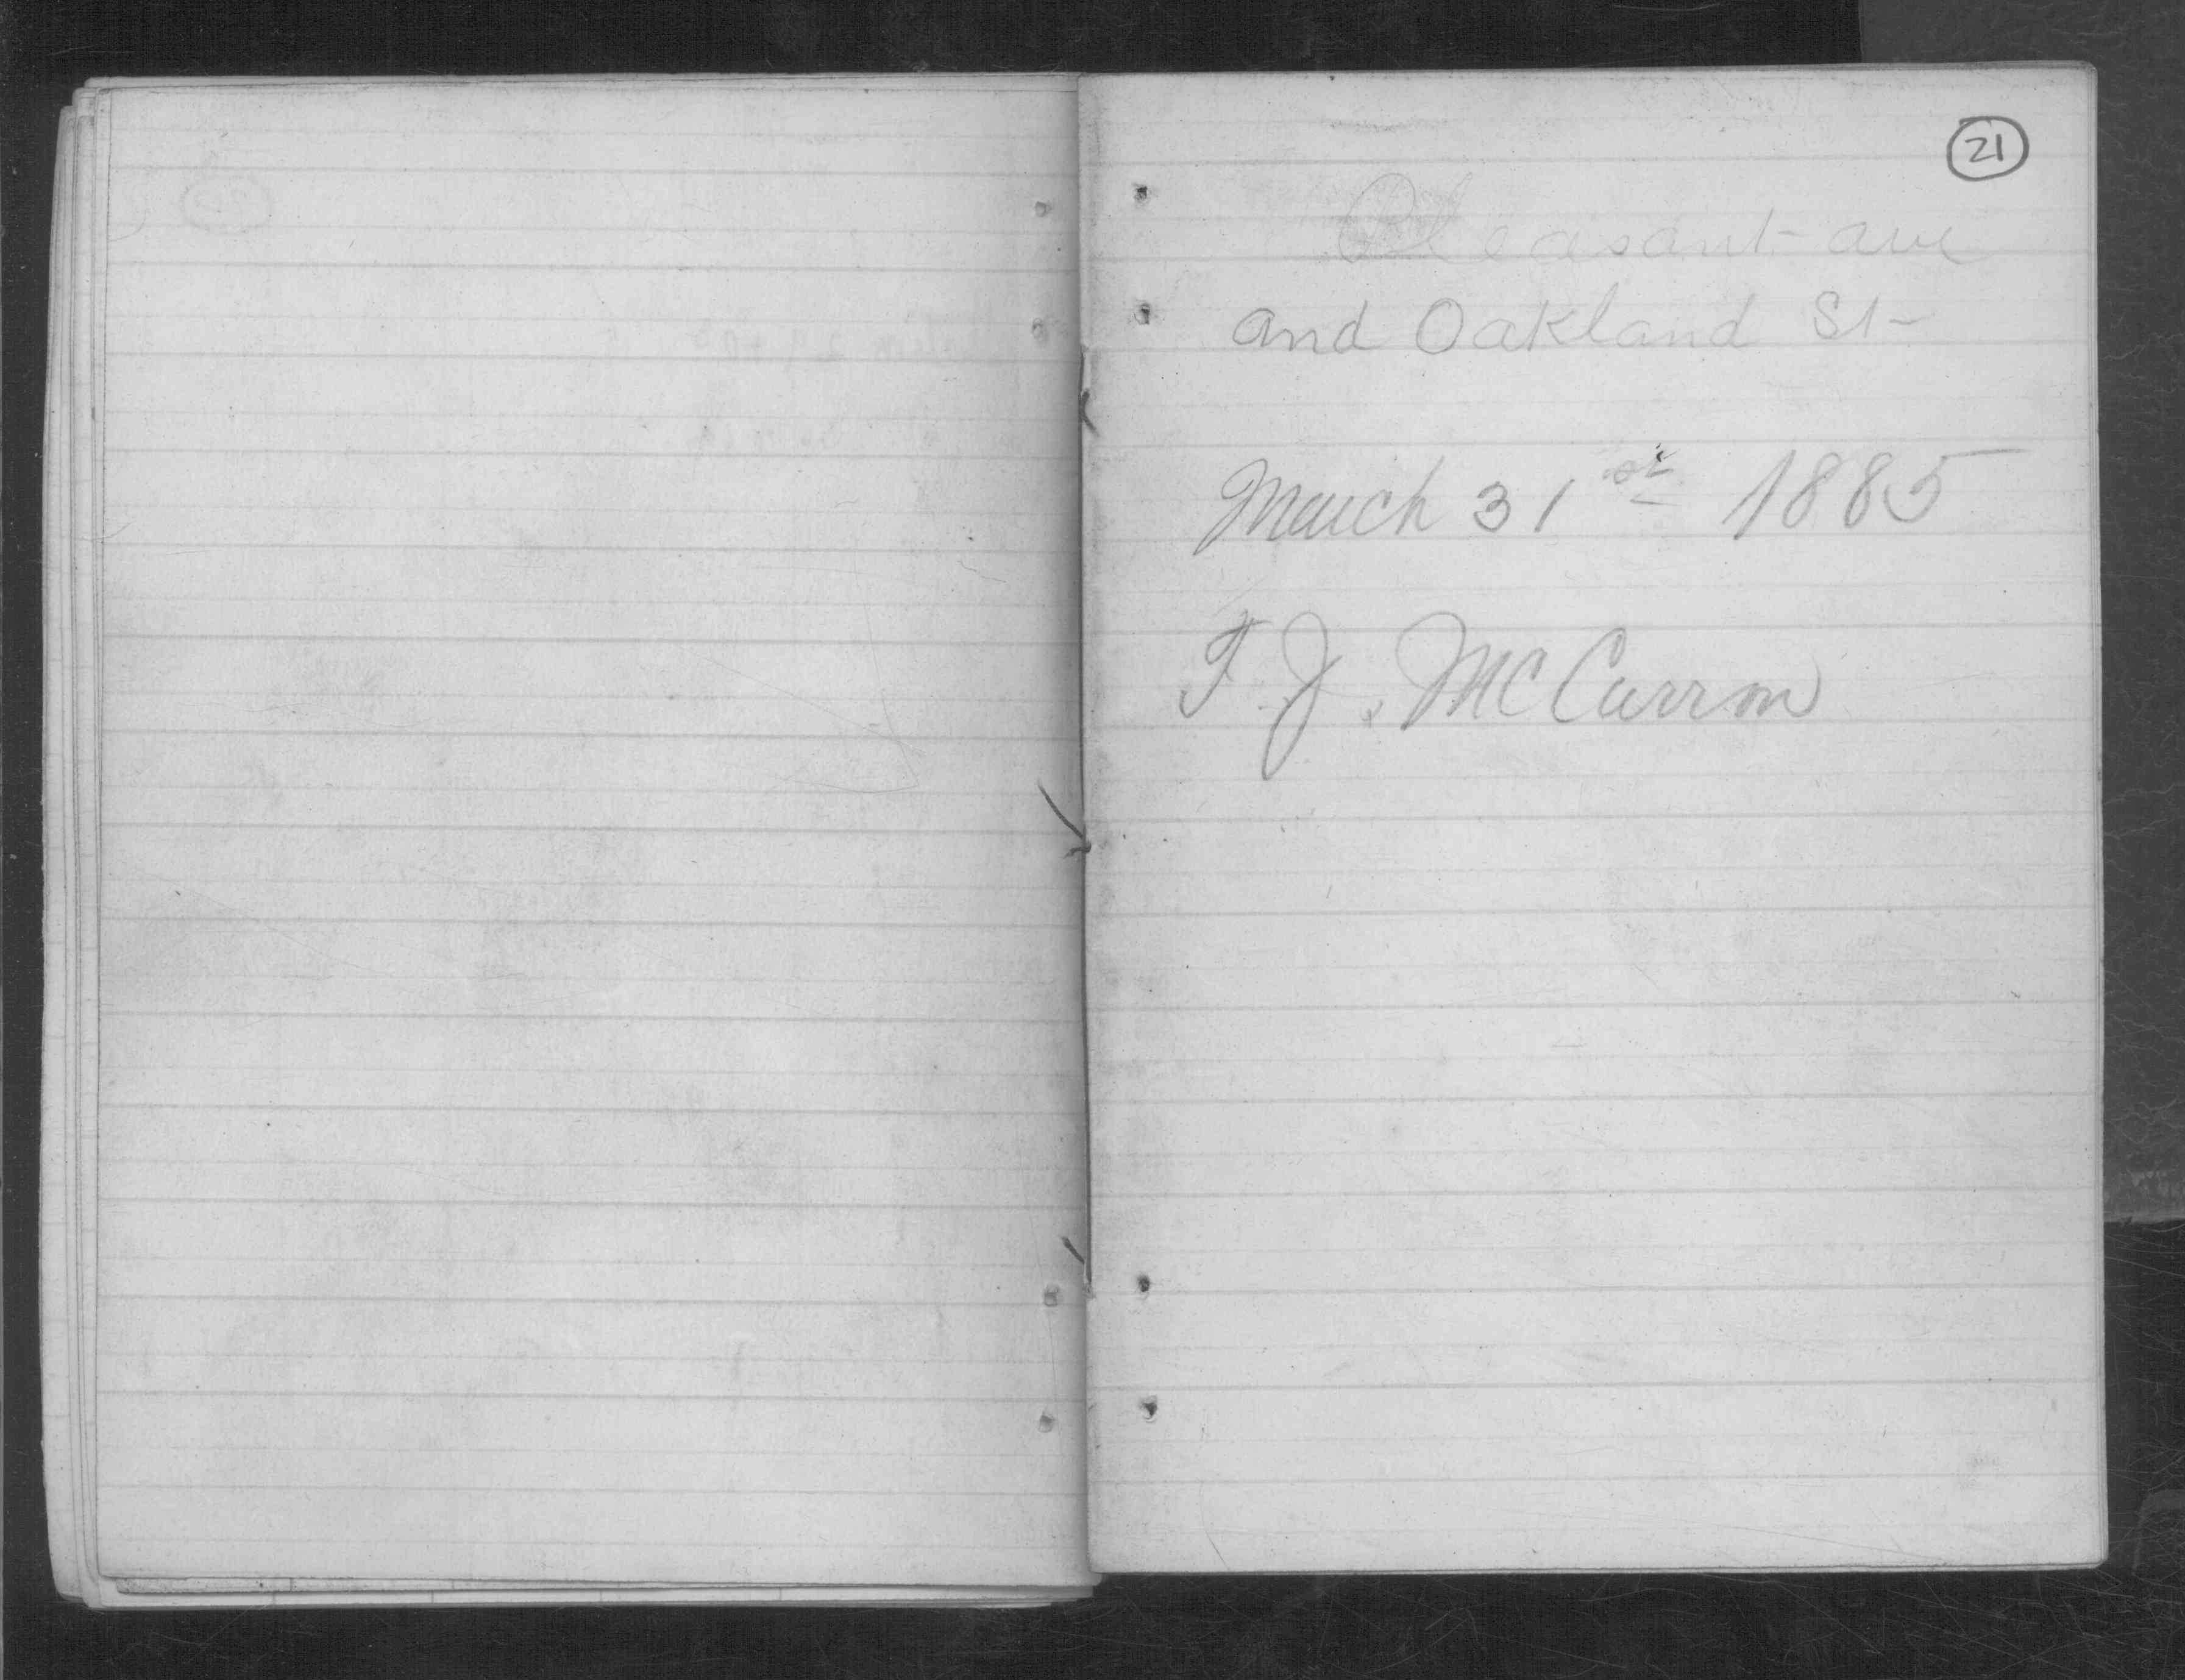 21
Pleasant ave
and Oakland St
March 31st 1885
T. J. McCurron